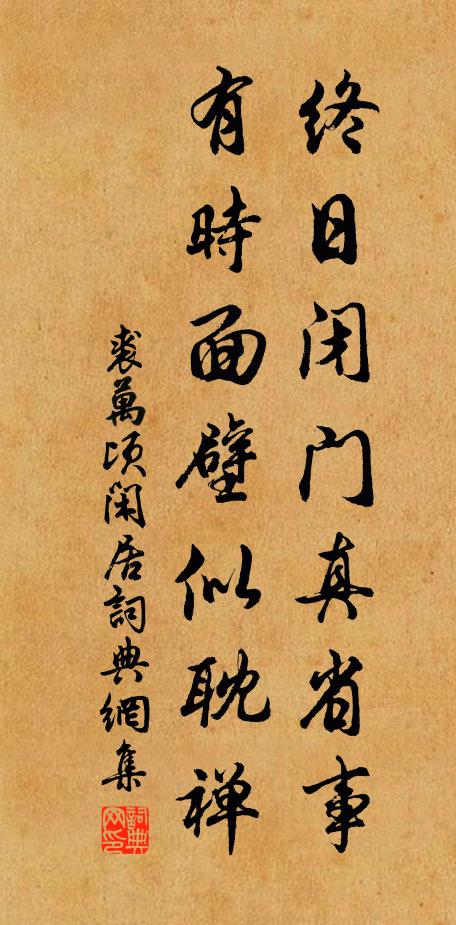 終日闭门真省事
有時面壁似耽禅
裘萬頃閑居詞典網集
詞典网印